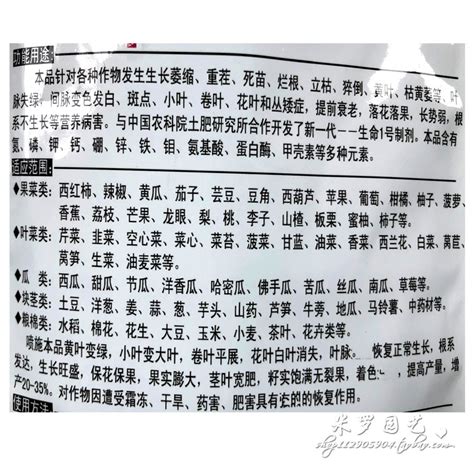 功能用途:
本品针对各种作物发生生长萎缩、重茬、死苗、烂根、立枯、猝倒、黄叶、枯黄萎等、叶
脉失绿、间脉变色发白、斑点、小叶、卷叶、花叶和丛矮症，提前衰老，落花落果，长势弱，根
系不生长等营养病害。与中国农科院土肥研究所合作开发了新一代--生命1号制剂。本品含有
氮、磷、钾、钙、硼、锌、铁、钼、氨基酸、蛋白酶、甲壳素等多种元素。
适应范围:
◆果菜类: 西红柿、辣椒、黄瓜、茄子、芸豆、豆角、西葫芦、苹果、葡萄、柑橘、柚子、菠萝、
香蕉、荔枝、芒果、龙眼、梨、桃、李子、山楂、板栗、蜜柚、柿子等。
◆叶菜类: 芹菜、韭菜、空心菜、菜心、菜苔、菠菜、甘蓝、油菜、香菜、西兰花、白菜、莴苣、
莴笋、生菜、油麦菜等。
◆瓜 类: 西瓜、甜瓜、节瓜、洋香瓜、哈密瓜、佛手瓜、苦瓜、丝瓜、南瓜、草莓等。
◆块茎类: 土豆、洋葱、姜、蒜、葱、芋头、山药、芦笋、牛蒡、地瓜、马铃薯、中药材等。
◆粮棉类: 水稻、棉花、花生、大豆、玉米、小麦、茶叶、花卉类等。
喷施本品黄叶变绿，小叶变大叶，卷叶平展，花叶白叶消失，叶脉 恢复正常生长，根系
发达，生长旺盛，保花保果，果实膨大，茎叶宽肥，籽实饱满无裂果，着色 提高产量，增
产20-35%。对作物因遭受霜冻、干旱、药害、肥害具有的恢复作用。
使用方法
朱罗园艺
zhzy112905904.taobao.com